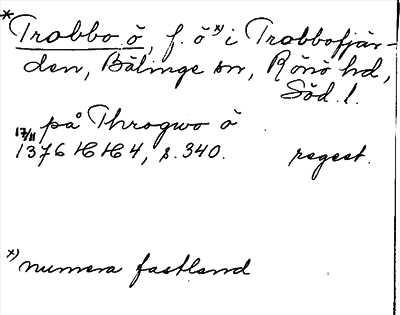 * Trobbo ö, f. ö x) i Trobbofjär-
den, Bälinge sn, Rönö hd,
Söd. l.
på Throgwo ö
17/11 1376 HH 4, s. 340. regest.
x) numera fastland